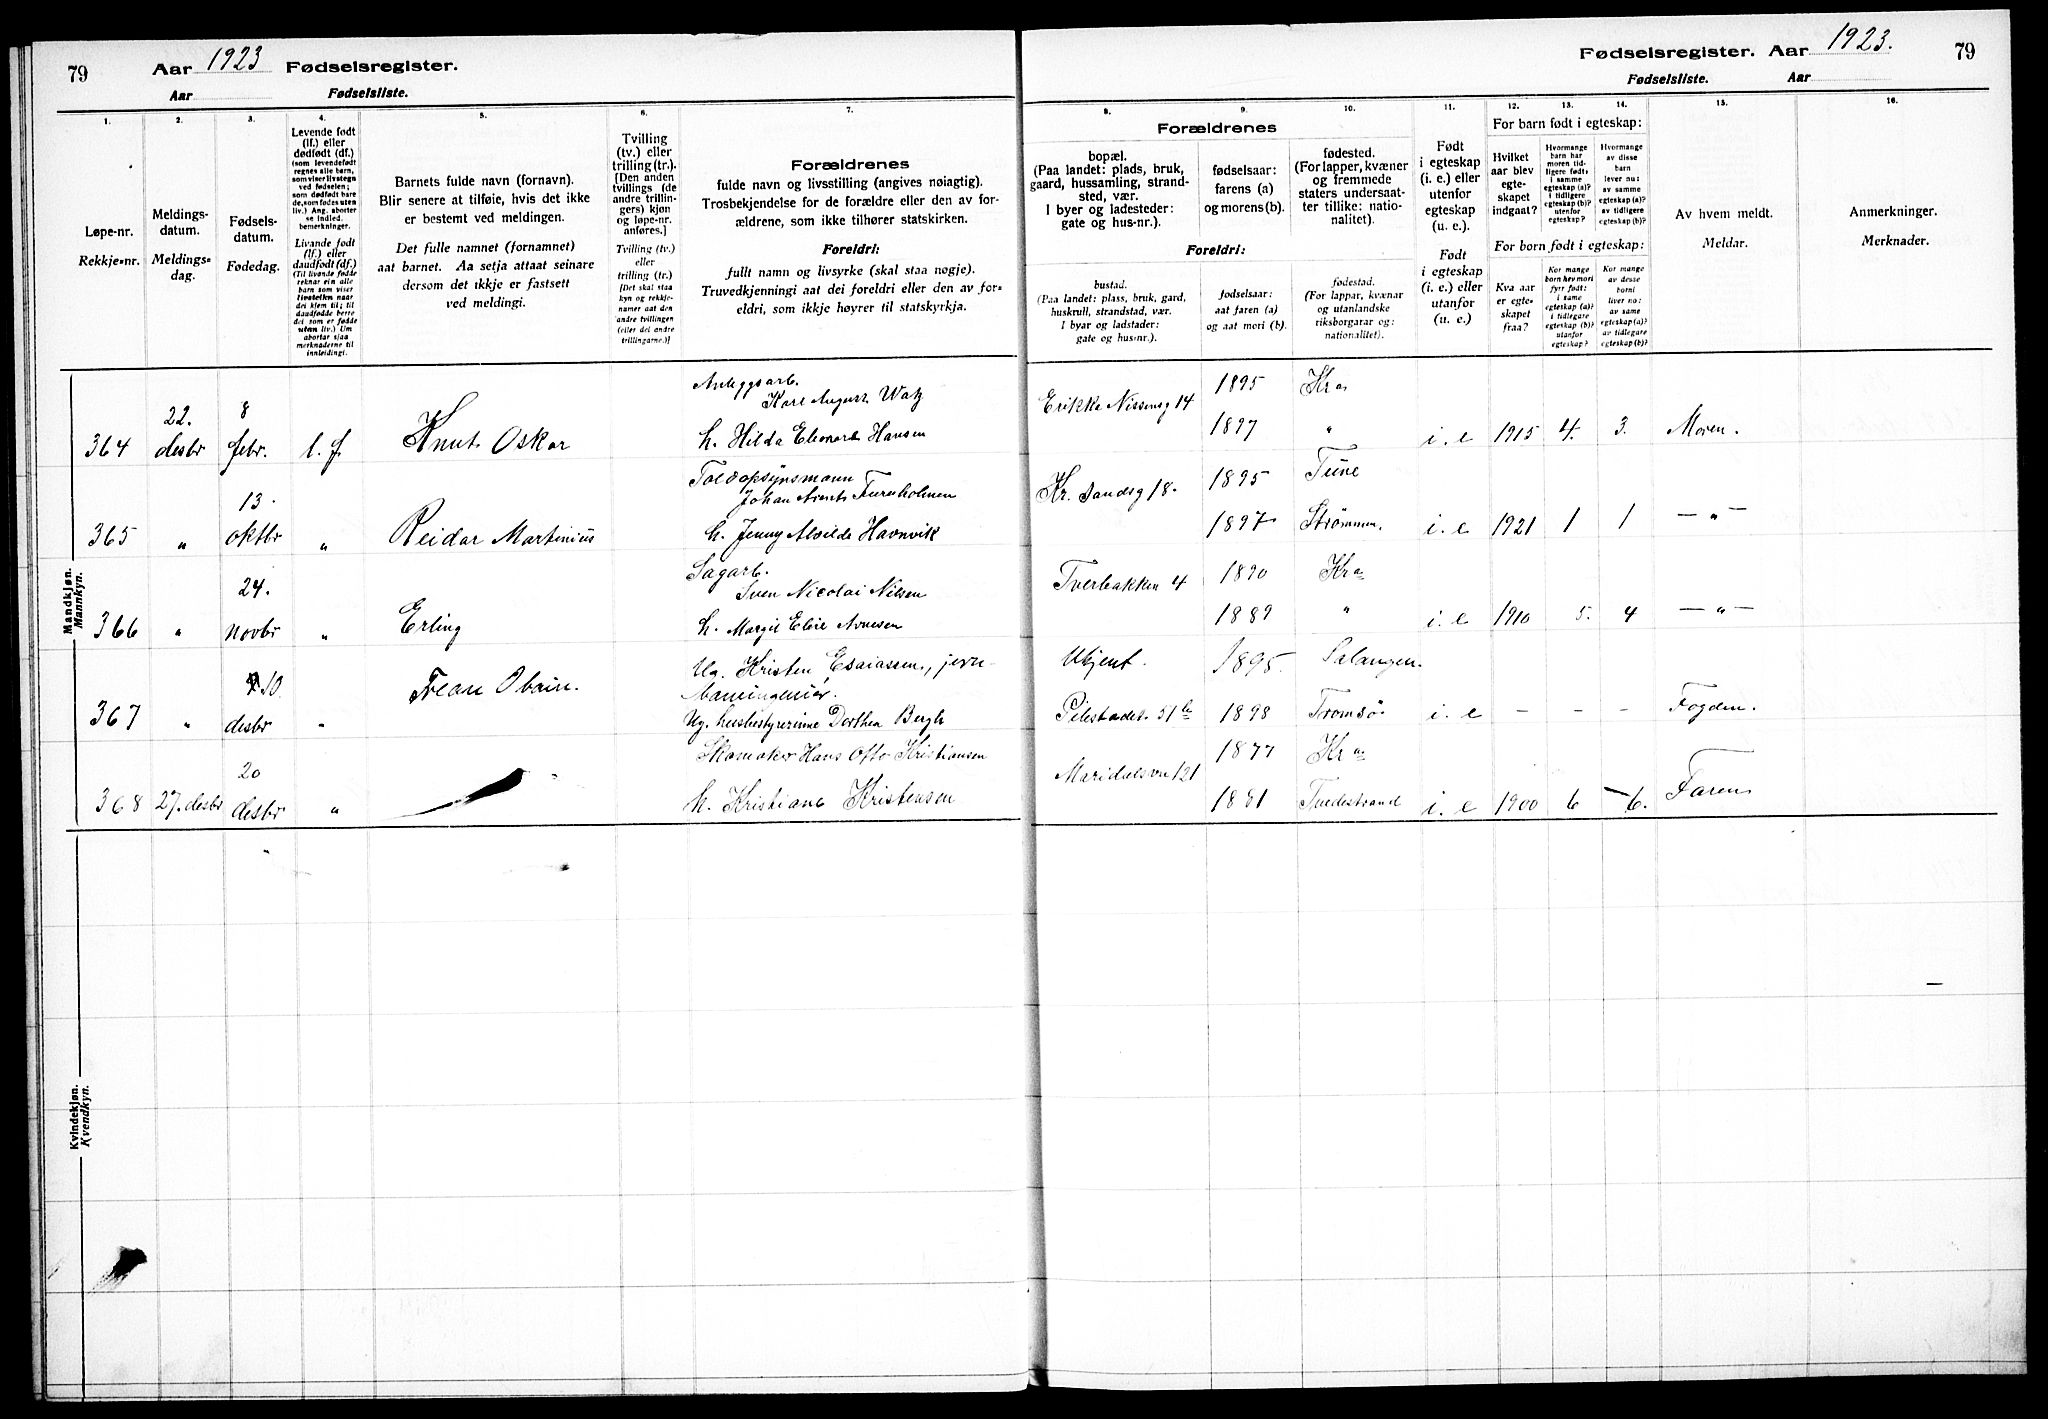 79 Aar 1923 Fødselsregister.
Aar Fødselsliste.
Fødselsregister. Aar 1923. 79
Fødselsliste. Aar
1. 2. 3. 4. 5. 6. 7.
Løpe-nr.
Rekkje-nr.
Meldings-
datum.
Meldings-
dag.
Fødsels-
datum.
Fødedag.
Levende født
(lf.) eller
dødfødt (df.)
(som levendefødt
regnes alle barn,
som viser livstegn
ved fødselen;
som dødfødt bar-
de, som fødes uten
liv.) Ang. aborter
se indled.
bemerkninger.
Livande født
(lf.) eller
daudfødt (df.)
(Til livande fødde
reknar ein alle
barn som viser
livsteikn naar
dei kjem til; til
daudfødde berre
dei som er fødde
utan liv.) Um
abortar sjaa
merknaderne til
innleidingi.
Barnets fulde navn (fornavn).
Blir senere at tilføie, hvis det ikke
er bestemt ved meldingen.
Det fulle namnet (fornamnet)
aat barnet. Aa setja attaat seinare
dersom det ikkje er fastsett
ved meldingi.
Tvilling
(tv.) eller
trilling (tr.).
[Den anden
tvillings (de
andre trillin-
gers) kjøn
og løpe-nr.
anføres.]
Tvilling (tv.)
eller
trilling (tr.)
[Det skal staa
kyn og rekkje-
numer aat den
andre tvillingen
(eller dei andre
trillingarne.)]
Forældrenes
fulde navn og livsstilling (angives nøiagtig).
Trosbekjendelse for de forældre eller den av for-
ældrene, som ikke tilhører statskirken.
Foreldri:
fullt namn og livsyrke (skal staa nøgje).
Truvedkjenningi aat dei foreldri eller den av for-
eldri, som ikkje høyrer til statskyrkja.
8. 9. 10. 11. 12. 13. 14. 15. 16.
Forældrenes
bopæl.
(Paa landet: plads, bruk,
gaard, hussamling, strand-
sted, vær.
I byer og ladesteder:
gate og hus-nr.).
fødselsaar:
farens (a)
og morens (b).
fødested.
(For lapper, kvæner
og fremmede
staters undersaat-
ter tillike: natio-
nalitet).
Foreldri:
bustad.
(Paa landet: plass, bruk, gard,
huskrull, strandstad, vær.
I byar og ladstader:
gate og hus-nr.).
fødselsaar:
aat faren (a)
og aat mori (b).
fødestad.
(For lappar, kvænar
og utanlandske
riksborgarar og:
nationalitet).
Født
i egteskap
(i. e.) eller
utenfor
egteskap
(u. e.).
Født
i egteskap
(i. e.) eller
utanfor
(u. e.)
For barn født i egteskap:
Hvilket
aar blev
egte-
skapet
indgaat?
Hvormange
barn har
moren tid-
ligere født:
i samme
egteskap (a)?
i tidligere
egteskap (b)?
utenfor
egteskap?
Hvormange
av disse
barn
lever nu:
av samme
egteskap (a)?
av tidligere
egteskap (b)?
For born født i egteskap:
Kva aar
er egte-
skapet
fraa?
Kor mange
born hev mori
fyrr født:
i same
egteskap (a)?
i tidlegare
egteskap (b)?
utanfor
egteskap?
Kor mange
av desse
borni
liver no:
av same
egteskap (a)?
av tidlegare
egteskap (b)?
Av hvem meldt.
Meldar.
Anmerkninger.
Merknader.
Mandkjøn.
Mannkyn.
364 22. desbr 8 febr. l. f. Knut Oskar
Anleggsarb.
Karl August Watz
h. Hilda Eleonore Hansen
Erikke Nissensg 14 1895 Kra
1897 " i. e 1915 4. 3. Moren.
365 " 13. oktbr " Reidar Martinius
Toldopsynsmann
Johan Arnt Furuholmen
h. Jenny Alvilde Havnvik
Kr.sandsg 18. 1895 Tune
1897 Strømmen. i. e 1921 1 1 — " —
366 " 24. novbr " Erling
Sagarb.
Sven Nicolai Nilsen
h. Margit Elise Arnesen
Tverbakken 4 1890 Kra
1889 " i. e 1910 5. 4 — " —
367 " 10. desbr " Obain.
Ug. Kristen Esaiassen, jern-
baneingeniør.
Ug. husbestyrerinne Dorthea Bergh
Ukjent. 1895. Salangen.
Pilestredet 31 1898 Tromsø. i. e – – – Fogden.
368 27. desbr 20 desbr "
Skomaker Hans Otto Kristiansen
h. Kristiane Kristensen
Maridalsvn 121 1877 Kra
1881 Tvedestrand i. e 1900 6 6. Faren
Kvindekjøn.
Kvendkyn.